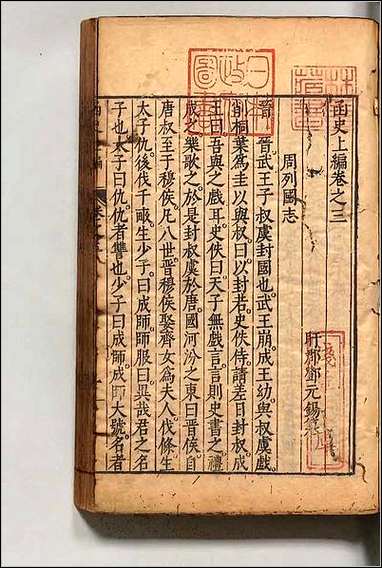 林氏藏書
日本政府圖書
函史上編卷之三
盱郡鄧元錫纂
周列國志
晉 晉武王子叔虞封國也武王崩成王幼與叔虞戲
削桐葉爲圭以與叔曰以封若史佚侍請差日封叔成
王曰吾與之戲耳史佚曰天子無戲言言則史書之禮
成之樂歌之於是封叔虞於唐國河汾之東曰晉侯自
唐叔至于穆侯凡八世晉穆侯娶齊女爲夫人伐條生
太子仇後伐千畝生少子曰成師師服曰異哉君之名
子也太子曰仇仇者讐也少子曰成師成師大號名者